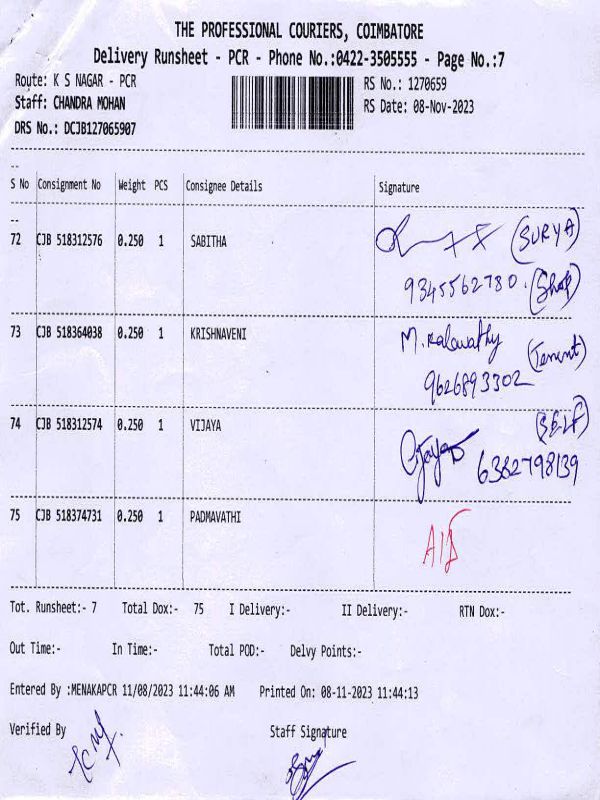 THE PROFESSIONAL COURIERS, COIMBATORE
Delivery Runsheet - PCR - Phone No.:0422-3505555 - Page No.:7
Route: K S NAGAR - PCR RS No.: 1270659
Staff: CHANDRA MOHAN RS Date: 08-Nov-2023
DRS No.: DCJB127065907
S No Consignment No Weight PCS Consignee Details Signature
72 CJB 518312576 0.250 1 SABITHA (SURYA)
9345562780. (Shop)
73 CJB 518364038 0.250 1 KRISHNAVENI M. Kalavathy (Tenent)
9626893302
74 CJB 518312574 0.250 1 VIJAYA (SELF)
6382798139
75 CJB 518374731 0.250 1 PADMAVATHI
Tot. Runsheet:- 7 Total Dox:- 75 I Delivery:- II Delivery:- RTN Dox:-
Out Time:- In Time:- Total POD:- Delvy Points:-
Entered By :MENAKAPCR 11/08/2023 11:44:06 AM Printed On: 08-11-2023 11:44:13
Verified By Staff Signature